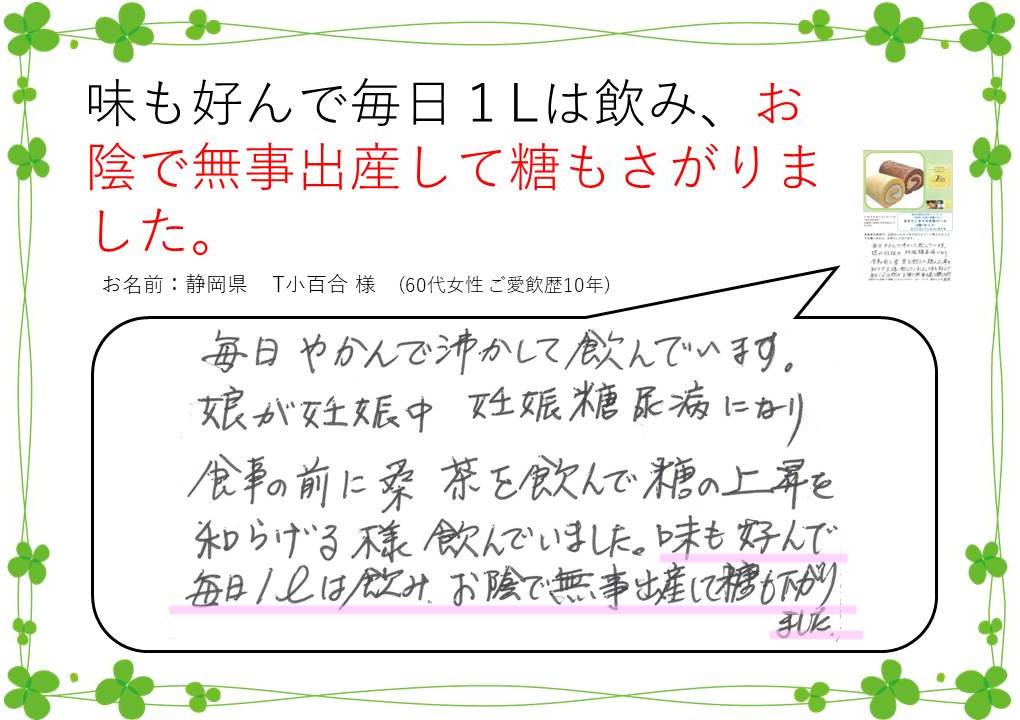 味も好んで毎日１Lは飲み、お
陰で無事出産して糖もさがりま
した。
お名前：静岡県　T小百合 様　(60代女性 ご愛飲歴10年)
毎日 やかんで沸かして飲んでいます。
娘が妊娠中 妊娠糖尿病になり
食事の前に桑 茶を飲んで糖の上昇を
和らげる様 飲んでいました。味も好んで
毎日1ℓは飲み お陰で無事出産して糖も下がり
ました。